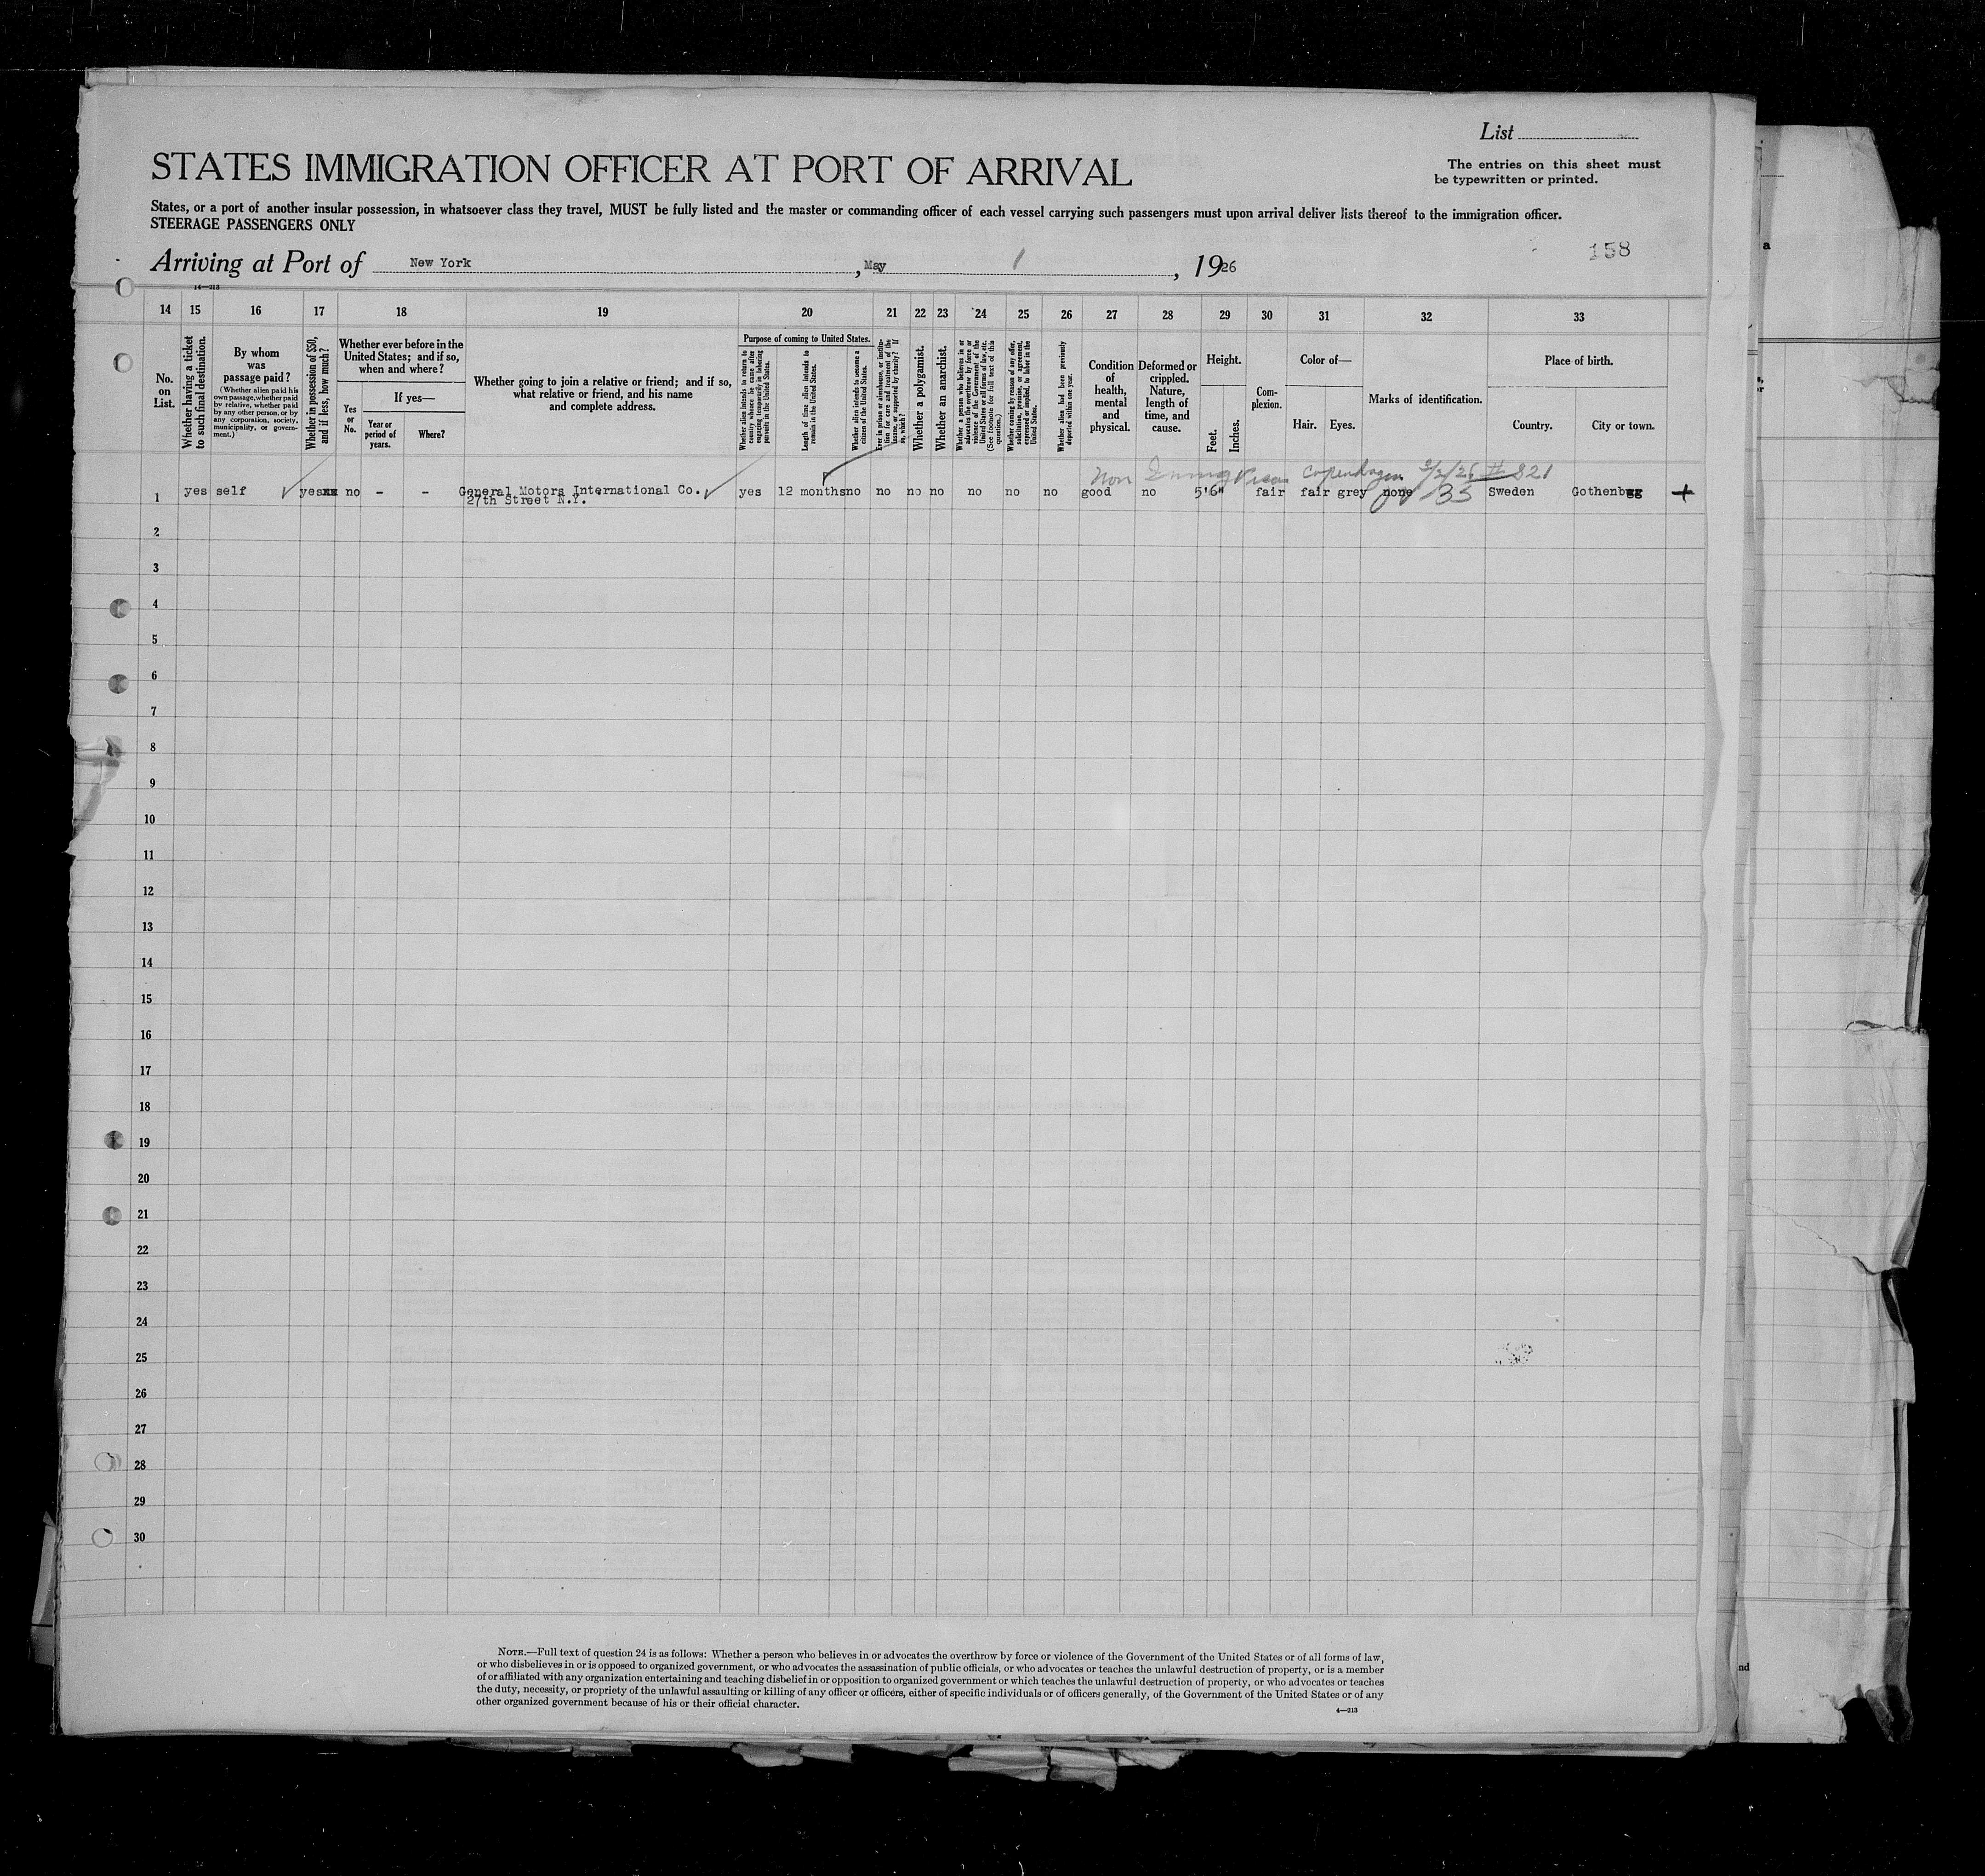 List
STATES IMMIGRATION OFFICER AT PORT OF ARRIVAL
The entries on this sheet must
be typewritten or printed.
States, or a port of another insular possession, in whatsoever class they travel, MUST be fully listed and the master or commanding officer of each vessel carrying such passengers must upon arrival deliver lists thereof to the immigration officer.
STEERAGE PASSENGERS ONLY
158
Arriving at Port of New York, May 1, 1926
14 15 16 17 18 19 20 21 22 23 24 25 26 27 28 29 30 31 32 33
No. on List.
Whether having a ticket to such final destination.
By whom was passage paid?
(Whether alien paid his own passage, whether paid by relative, whether paid by any other person, or by any corporation, society, municipality, or government.)
Whether in possession of $50, and if less, how much?
Whether ever before in the United States; and if so, when and where?
Yes or No.
If yes—
Year or period of years.
Where?
Whether going to join a relative or friend; and if so, what relative or friend, and his name and complete address.
Purpose of coming to United States.
Whether alien intends to return to country whence he came after engaging temporarily in laboring pursuits in the United States.
Length of time alien intends to remain in the United States.
Whether alien intends to become a citizen of the United States.
Ever in prison or almshouse, or institution for care and treatment of the insane, or supported by charity? If so, which?
Whether a polygamist.
Whether an anarchist.
Whether a person who believes in or advocates the overthrow by force or violence of the Government of the United States or all forms of law, etc. (See footnote for full text of this question.)
Whether coming by reason of any offer, solicitation, promise, or agreement, expressed or implied, to labor in the United States.
Whether alien had been previously deported within one year.
Condition of health, mental and physical.
Deformed or crippled. Nature, length of time, and cause.
Height.
Feet.
Inches.
Complexion.
Color of—
Hair. Eyes.
Marks of identification.
Place of birth.
Country. City or town.
Non Immig Visa Copenhagen 3/2/26 # 821
1 yes self yes no - - General Motors International Co. yes 12 months no no no no no no no good no 5'6" fair fair grey none 35 Sweden Gothenb
27th Street N.Y.
2
3
4
5
6
7
8
9
10
11
12
13
14
15
16
17
18
19
20
21
22
23
24
25
26
27
28
29
30
NOTE.—Full text of question 24 is as follows: Whether a person who believes in or advocates the overthrow by force or violence of the Government of the United States or of all forms of law,
or who disbelieves in or is opposed to organized government, or who advocates the assassination of public officials, or who advocates or teaches the unlawful destruction of property, or is a member
of or affiliated with any organization entertaining and teaching disbelief in or opposition to organized government or which teaches the unlawful destruction of property, or who advocates or teaches
the duty, necessity, or propriety of the unlawful assaulting or killing of any officer or officers, either of specific individuals or of officers generally, of the Government of the United States or of any
other organized government because of his or their official character.